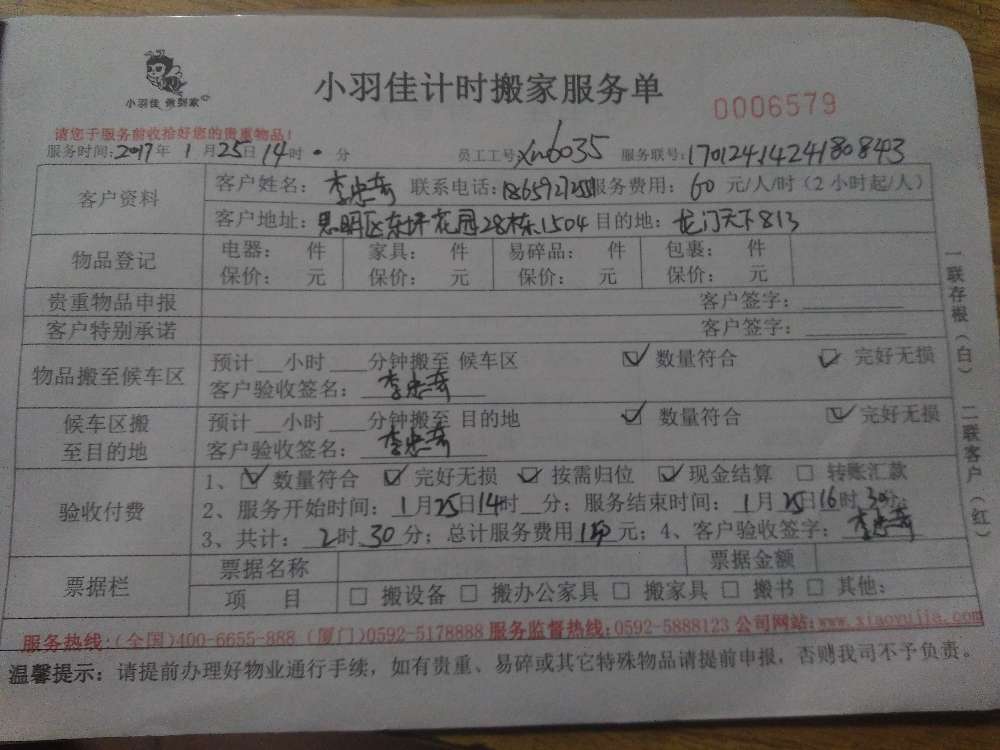 小羽佳 做到家
小羽佳计时搬家服务单
0006579
请您于服务前收拾好您的贵重物品！
服务时间：2017年 1 月 25日 14时 · 分 员工工号：xm6035 服务联号：1701241424180843
客户资料 客户姓名： 联系电话： 服务费用：60 元/人/时（2 小时起/人）
客户地址：思明区东坪花园28栋1504 目的地：龙门天下813
物品登记 电器： 件 家具： 件 易碎品： 件 包裹： 件
保价： 元 保价： 元 保价： 元 保价： 元
贵重物品申报 客户签字：
客户特别承诺 客户签字：
物品搬至候车区 预计__小时___分钟搬至 候车区 ☑ 数量符合 ☑ 完好无损
客户验收签名：
候车区搬至目的地 预计__小时___分钟搬至 目的地 ☑ 数量符合 ☑ 完好无损
客户验收签名：
验收付费 1、☑ 数量符合 ☑ 完好无损 ☑ 按需归位 ☑ 现金结算 □ 转账汇款
2、服务开始时间：1月25日14时__分；服务结束时间：1月25日16时30分
3、共计：2时30分；总计服务费用 元；4、客户验收签字：
票据栏 票据名称 票据金额
项 目 □ 搬设备 □ 搬办公家具 □ 搬家具 □ 搬书 □ 其他：
一联存根（白） 二联客户（红）
服务热线：(全国)400-6655-888 (厦门)0592-5178888 服务监督热线：0592-5888123 公司网站：www.xiaoyujia.com
温馨提示：请提前办理好物业通行手续，如有贵重、易碎或其它特殊物品请提前申报，否则我司不予负责。